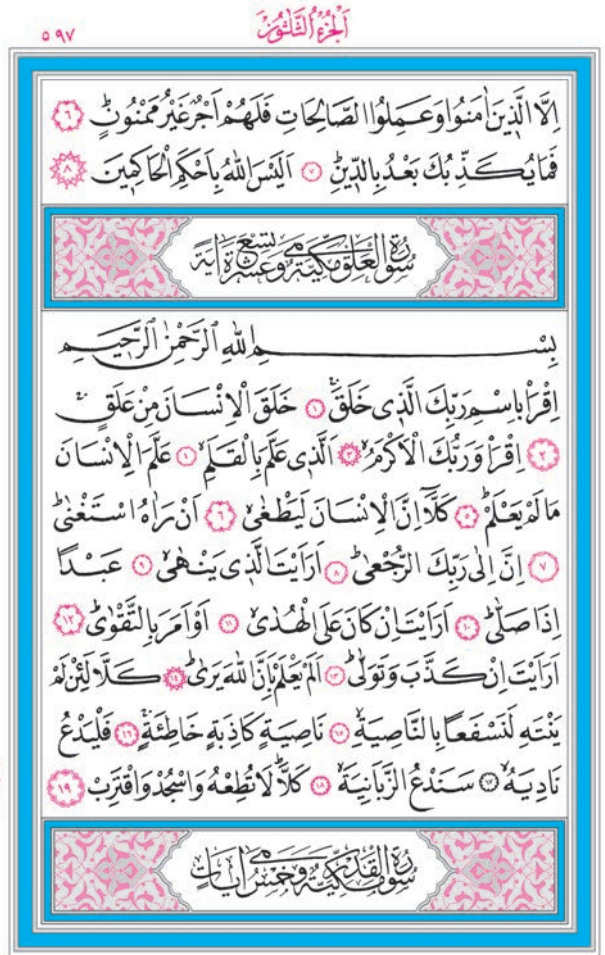 اَلْجُزْءُ الثَّلٰثُونَ
٥٩٧
اِلَّا الَّذ۪ينَ اٰمَنُوا وَعَمِلُوا الصَّالِحَاتِ فَلَهُمْ اَجْرٌ غَيْرُ مَمْنُونٍۜ ٦
فَمَا يُكَذِّبُكَ بَعْدُ بِالدّ۪ينِۜ ٧ اَلَيْسَ اللّٰهُ بِاَحْكَمِ الْحَاكِم۪ينَ ٨
سُورَةُ الْعَلَقِ مَكِّيَّةٌ وَهِيَ تِسْعَ عَشْرَةَ اٰيَةً
بِسْمِ اللّٰهِ الرَّحْمٰنِ الرَّح۪يمِ
اِقْرَأْ بِاسْمِ رَبِّكَ الَّذ۪ي خَلَقَۚ ١ خَلَقَ الْاِنْسَانَ مِنْ عَلَقٍۚ
٢ اِقْرَأْ وَرَبُّكَ الْاَكْرَمُۙ ٣ اَلَّذ۪ي عَلَّمَ بِالْقَلَمِۙ ٤ عَلَّمَ الْاِنْسَانَ
مَا لَمْ يَعْلَمْۜ ٥ كَلَّٓا اِنَّ الْاِنْسَانَ لَيَطْغٰىۙ ٦ اَنْ رَاٰهُ اسْتَغْنٰىۜ
٧ اِنَّ اِلٰى رَبِّكَ الرُّجْعٰىۜ ٨ اَرَاَيْتَ الَّذ۪ي يَنْهٰىۙ ٩ عَبْدًا
اِذَا صَلّٰىۜ ١٠ اَرَاَيْتَ اِنْ كَانَ عَلَى الْهُدٰىۙ ١١ اَوْ اَمَرَ بِالتَّقْوٰىۜ ١٢
اَرَاَيْتَ اِنْ كَذَّبَ وَتَوَلّٰىۜ ١٣ اَلَمْ يَعْلَمْ بِاَنَّ اللّٰهَ يَرٰىۜ ١٤ كَلَّا لَئِنْ لَمْ
يَنْتَهِ لَنَسْفَعًا بِالنَّاصِيَةِۙ ١٥ نَاصِيَةٍ كَاذِبَةٍ خَاطِئَةٍۚ ١٦ فَلْيَدْعُ
نَادِيَهُۙ ١٧ سَنَدْعُ الزَّبَانِيَةَۙ ١٨ كَلَّاۜ لَا تُطِعْهُ وَاسْجُدْ وَاقْتَرِبْ ١٩
سُورَةُ الْقَدْرِ مَكِّيَّةٌ وَهِيَ خَمْسُ اٰيَاتٍ